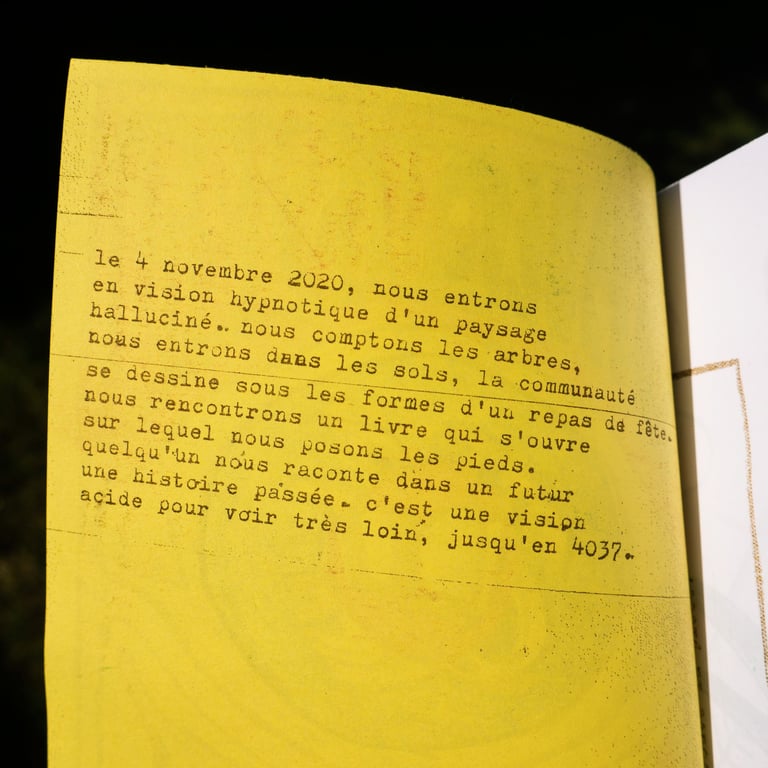 le 4 novembre 2020, nous entrons
en vision hypnotique d'un paysage
halluciné. nous comptons les arbres,
nous entrons dans les sols, la communauté
se dessine sous les formes d'un repas de fête.
nous rencontrons un livre qui s'ouvre
sur lequel nous posons les pieds.
quelqu'un nous raconte dans un futur
une histoire passée. c'est une vision
acide pour voir très loin, jusqu'en 4037.